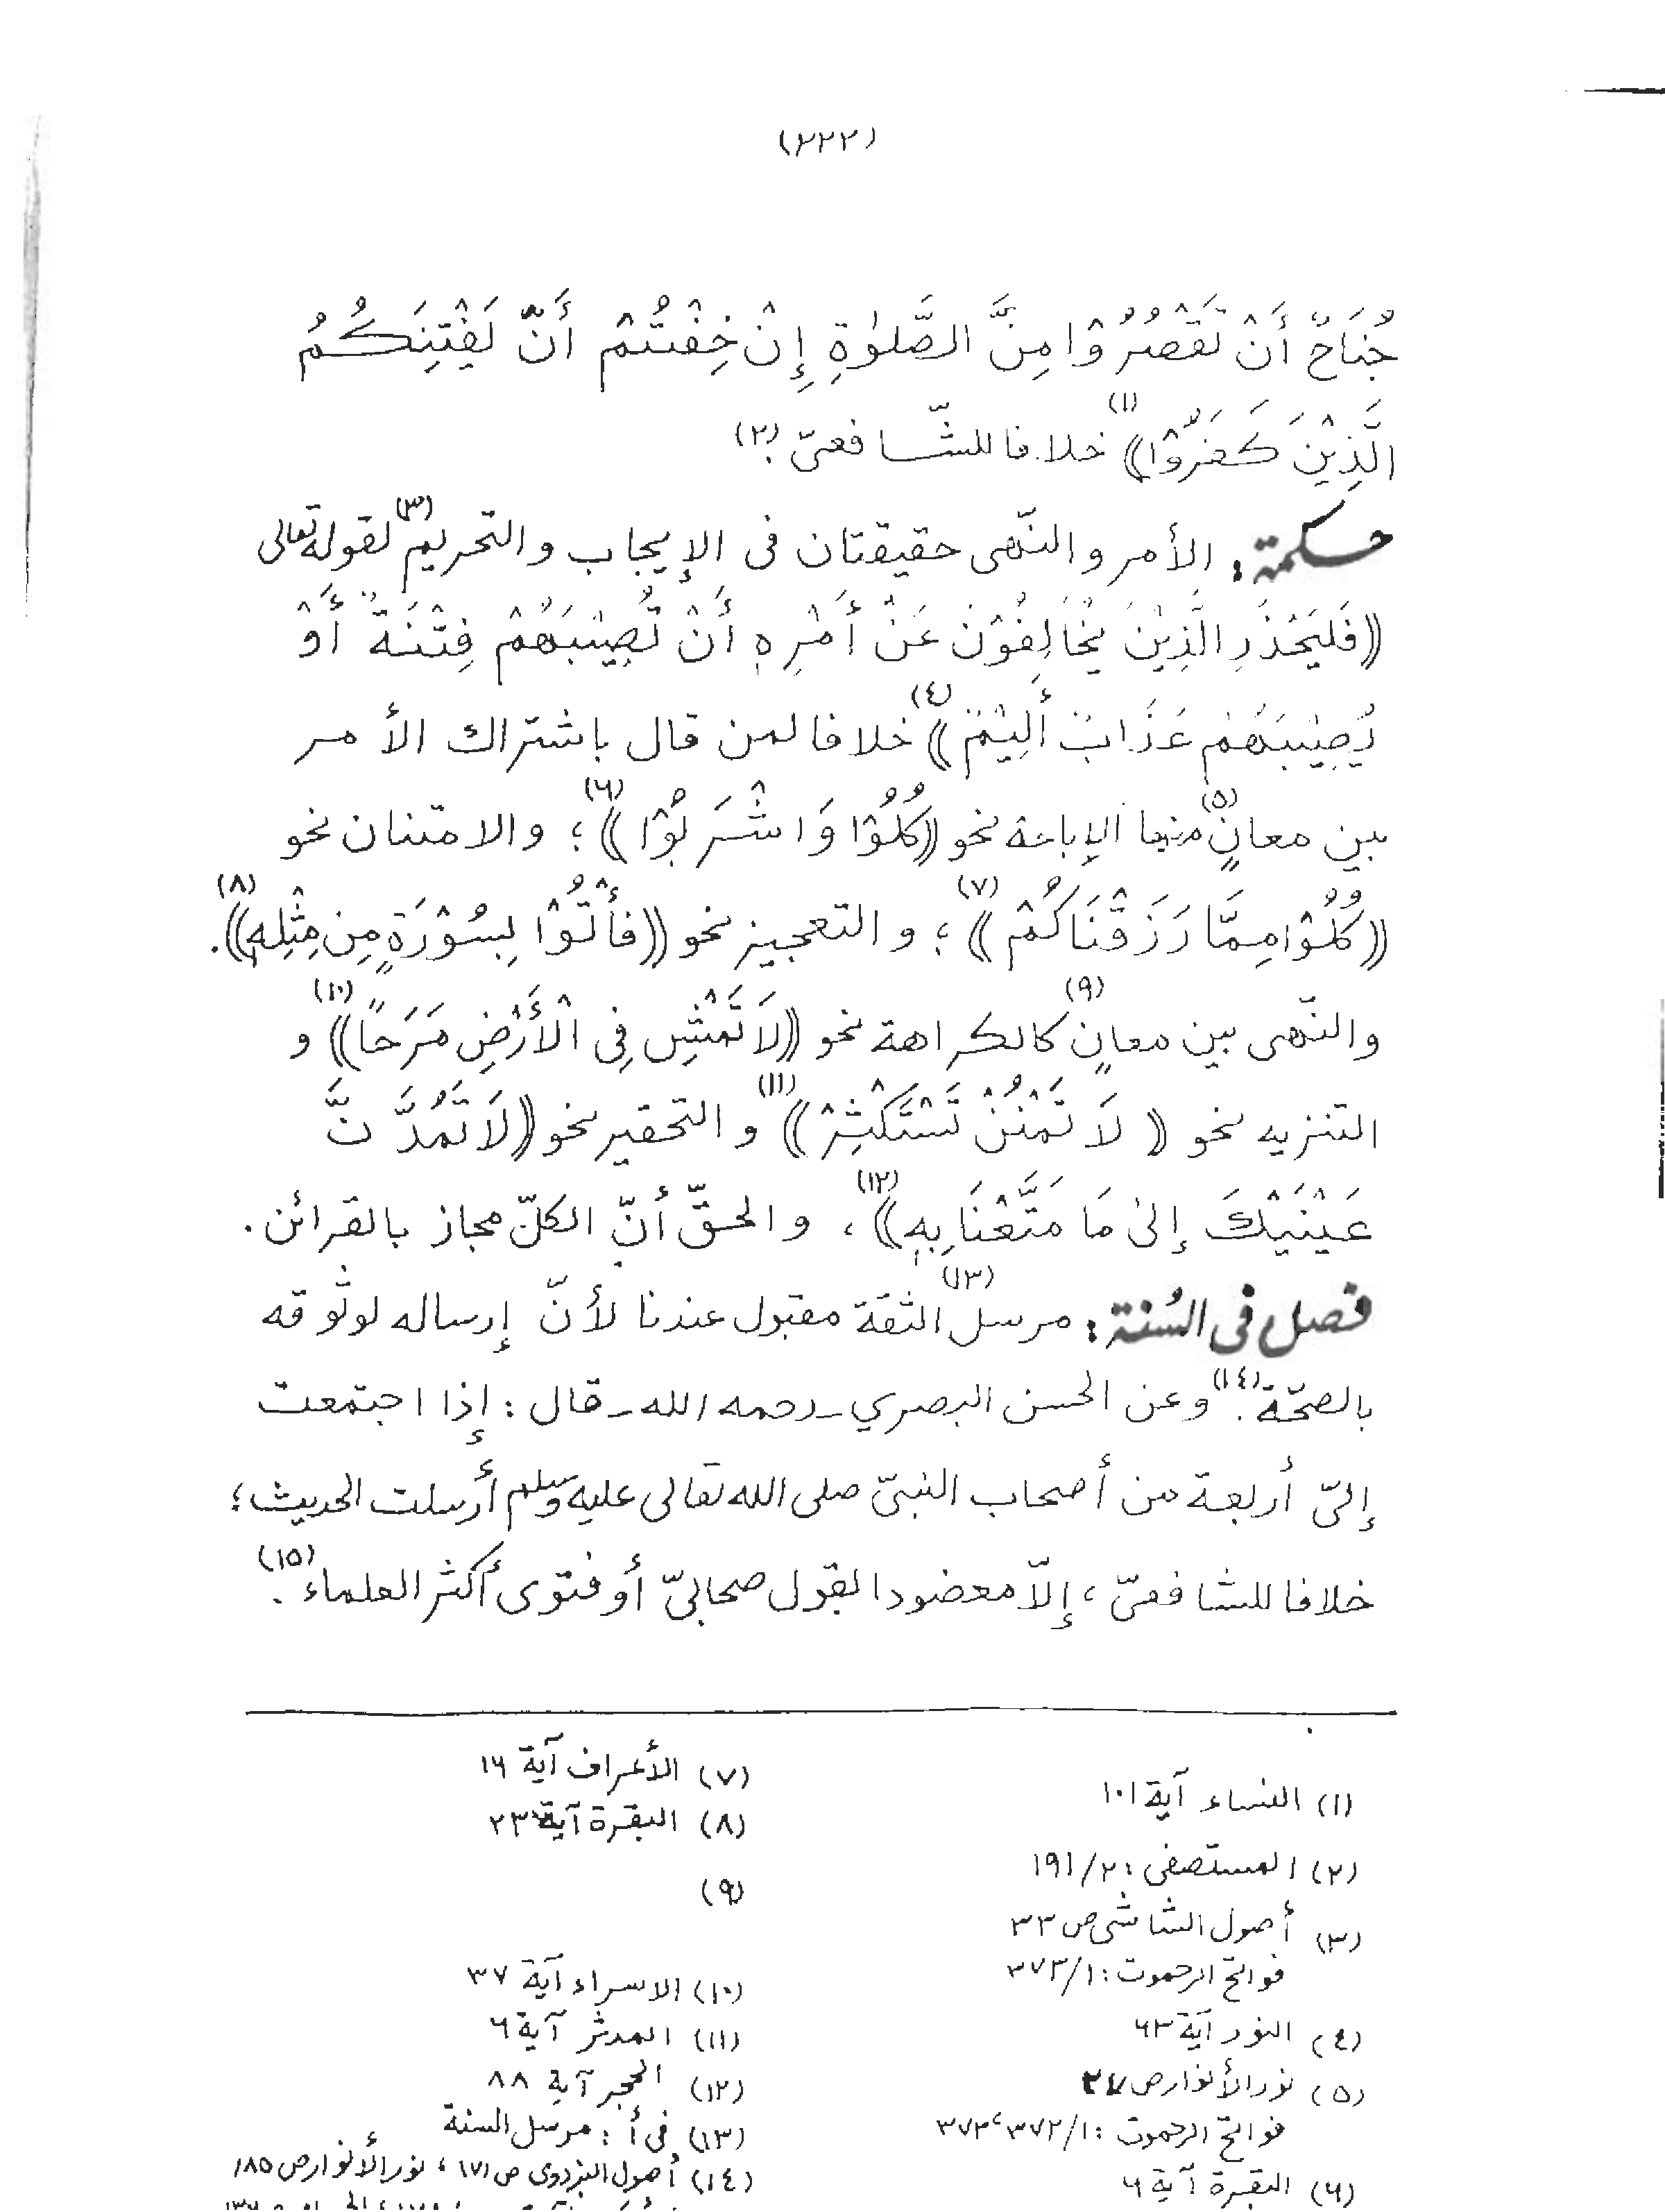 (٢٢٢)
جُنَاحٌ أَنْ تَقْصُرُوْا مِنَ الصَّلوٰةِ إِنْ خِفْتُمْ أَنْ يَفْتِنَكُمُ
الَّذِيْنَ كَفَرُوْا)) (١) خلافا للشّافعىّ؛ (٢)
حكمة: الأمر والنّهى حقيقتان فى الإيجاب والتحريم (٣) لقوله تعالى
((فَلْيَحْذَرِ الَّذِيْنَ يُخَالِفُوْنَ عَنْ أَمْرِهٖ أَنْ تُصِيْبَهُمْ فِتْنَةٌ أَوْ
يُصِيْبَهُمْ عَذَابٌ أَلِيْمٌ)) (٤) خلافا لمن قال باشتراك الأمر
بين معانٍ (٥) منها الإباحة نحو ((كُلُوْا وَاشْرَبُوْا)) (٦)؛ والامتنان نحو
((كُلُوْا مِمَّا رَزَقْنَاكُمْ)) (٧)؛ والتعجيز نحو ((فَأْتُوْا بِسُوْرَةٍ مِن مِثْلِهٖ)) (٨).
والنّهى بين معانٍ (٩) كالكراهة نحو ((لَا تَمْشِ فِى الْأَرْضِ مَرَحًا)) (١٠) و
التنزيه نحو (( لَا تَمْنُنْ تَسْتَكْثِرْ)) (١١) والتحقير نحو ((لَا تَمُدَّنَّ
عَيْنَيْكَ إِلىٰ مَا مَتَّعْنَا بِهٖ)) (١٢)، والحقّ أنّ الكلّ مجاز بالقرائن.
فصل فى السُنة: مرسل (١٣) الثقة مقبول عندنا لأنّ إرساله لوثوقه
بالصحّة. (١٤) وعن الحسن البصري ـ رحمه الله ـ قال: إذا اجتمعت
إلىّ أربعة من أصحاب النبىّ صلى الله تعالى عليه وسلم أرسلت الحديث؛
خلافا للشافعىّ، إلّا معضودا بقول صحابىّ أو فتوى أكثر العلماء. (١٥)
(١) النساء آية ١٠١
(٢) المستصفى: ٢/١٩١
(٣) أصول الشاشى ص ٣٣
فواتح الرحموت: ١/٣٧٣
(٤) النور آية ٦٣
(٥) نور الأنوار ص ٢٧
فواتح الرحموت: ١/٣٧٢، ٣٧٣
(٦) البقرة آية ٦
(٧) الأعراف آية ١٦
(٨) البقرة آية ٢٣
(٩)
(١٠) الاسراء آية ٣٧
(١١) المدثر آية ٦
(١٢) الحجر آية ٨٨
(١٣) فى أ: مرسل السنة
(١٤) أصول البزدوى ص ١٧١، نور الأنوار ص ١٨٥